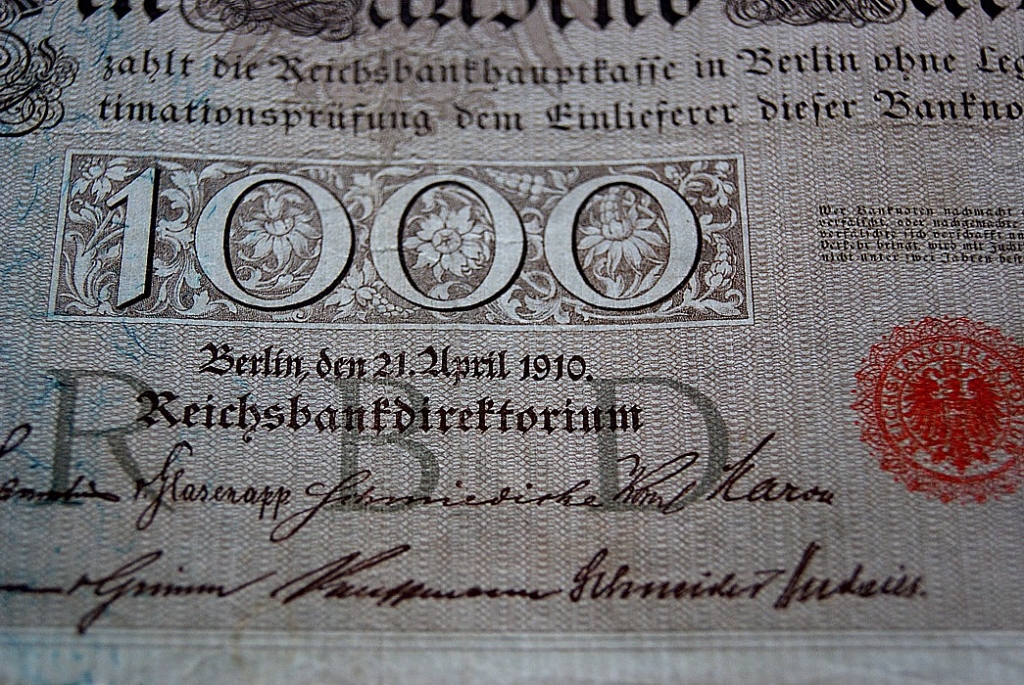 Tausend
zahlt die Reichsbankhauptkasse in Berlin ohne Leg
timationsprüfung dem Einlieferer dieser Bankno
1000
Wer Banknoten nachmacht
verfälscht oder nachgemachte
verfälschte sich verschafft un
Verkehr bringt, wird mit Zuch
nicht unter zwei Jahren best
Berlin, den 21. April 1910.
Reichsbankdirektorium
R B D
v. Glasenapp Schmiedicke Korn Maron
v. Grimm Kauffmann Schneider Budczies.